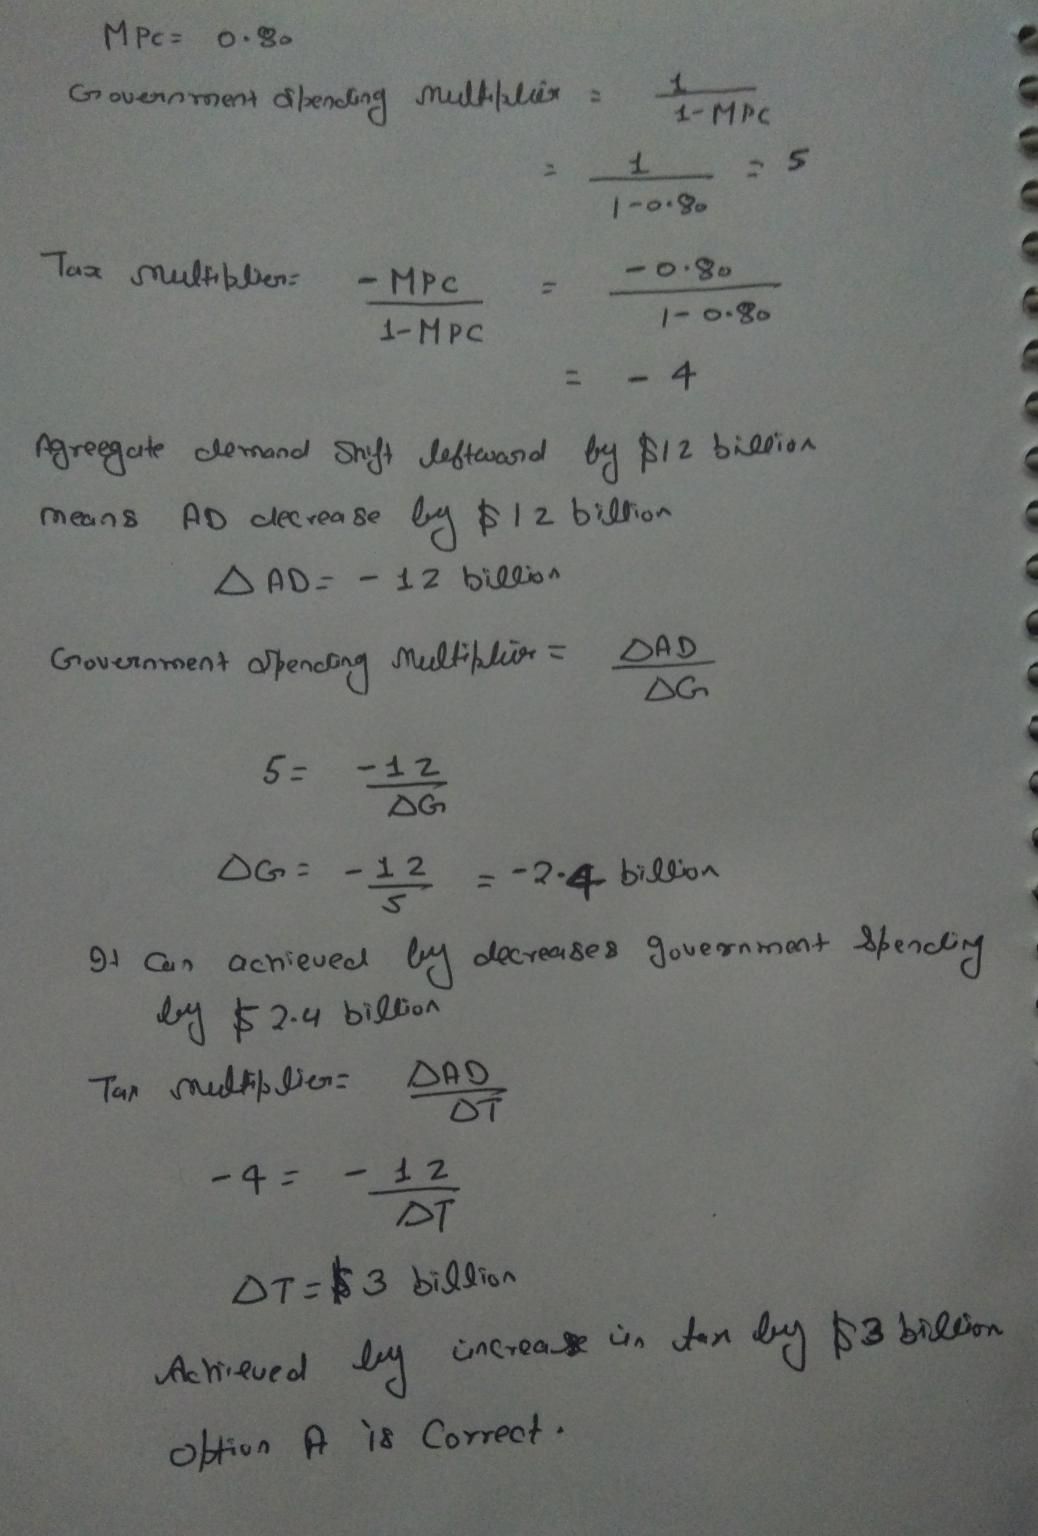 MPC = 0.80
Government spending multiplier = 1/1-MPC
= 1/1-0.80 = 5
Tax multiplier = -MPC/1-MPC = -0.80/1-0.80
= - 4
Agreegate demand shift leftward by $12 billion
means AD decrease by $12 billion
ΔAD = - 12 billion
Government spending multiplier = ΔAD/ΔG
5 = -12/ΔG
ΔG = -12/5 = -2.4 billion
It can achieved by decreases government spending
by $2.4 billion
Tax multiplier = ΔAD/ΔT
-4 = -12/ΔT
ΔT = $3 billion
Achieved by increase in tax by $3 billion
option A is correct.